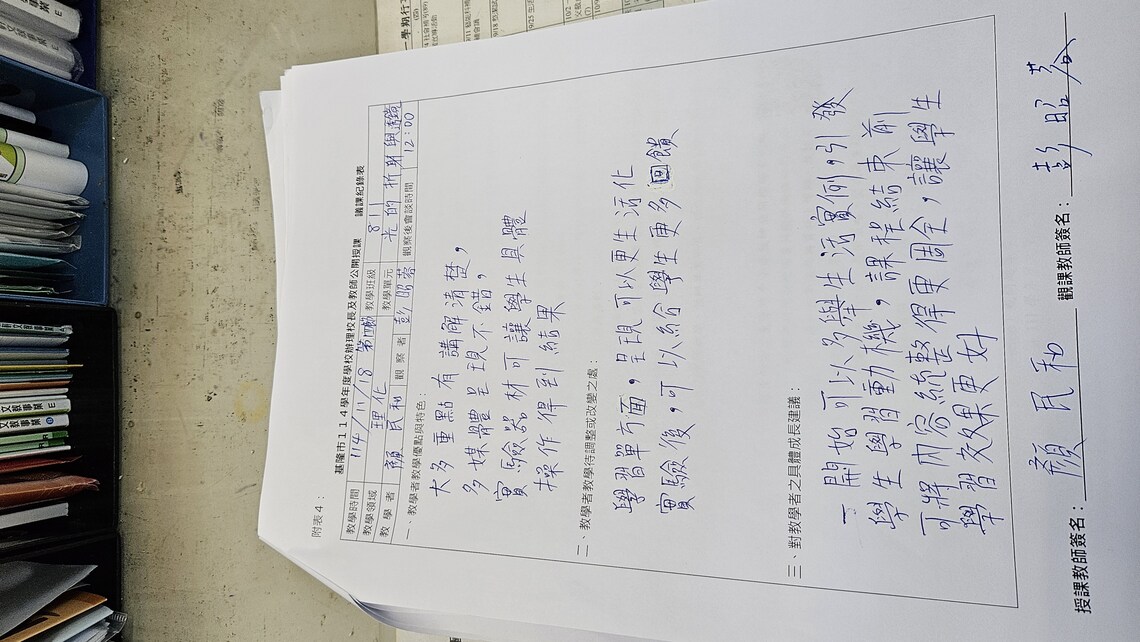 附表4：
基隆市114學年度學校辦理校長及教師公開授課 議課紀錄表
教學時間 114/11/18 第四節 教學班級 811
教學領域 理化 教學單元 光的折射與透鏡
教學者 顏民和 觀察者 彭昭蓉 觀察後會談時間 12:00
一、教學者教學優點與特色：
大多重點有講解清楚，
多媒體呈現不錯，
實驗器材可讓學生具體
操作得到結果
二、教學者教學待調整或改變之處：
學習單方面，呈現可以更生活化
實驗後，可以給學生更多回饋
三、對教學者之具體成長建議：
一開始可以多舉生活實例，引發
學生學習動機，課程結束前
可將內容統整得更周全，讓學生
學習效果更好
授課教師簽名：顏民和 觀課教師簽名：彭昭蓉